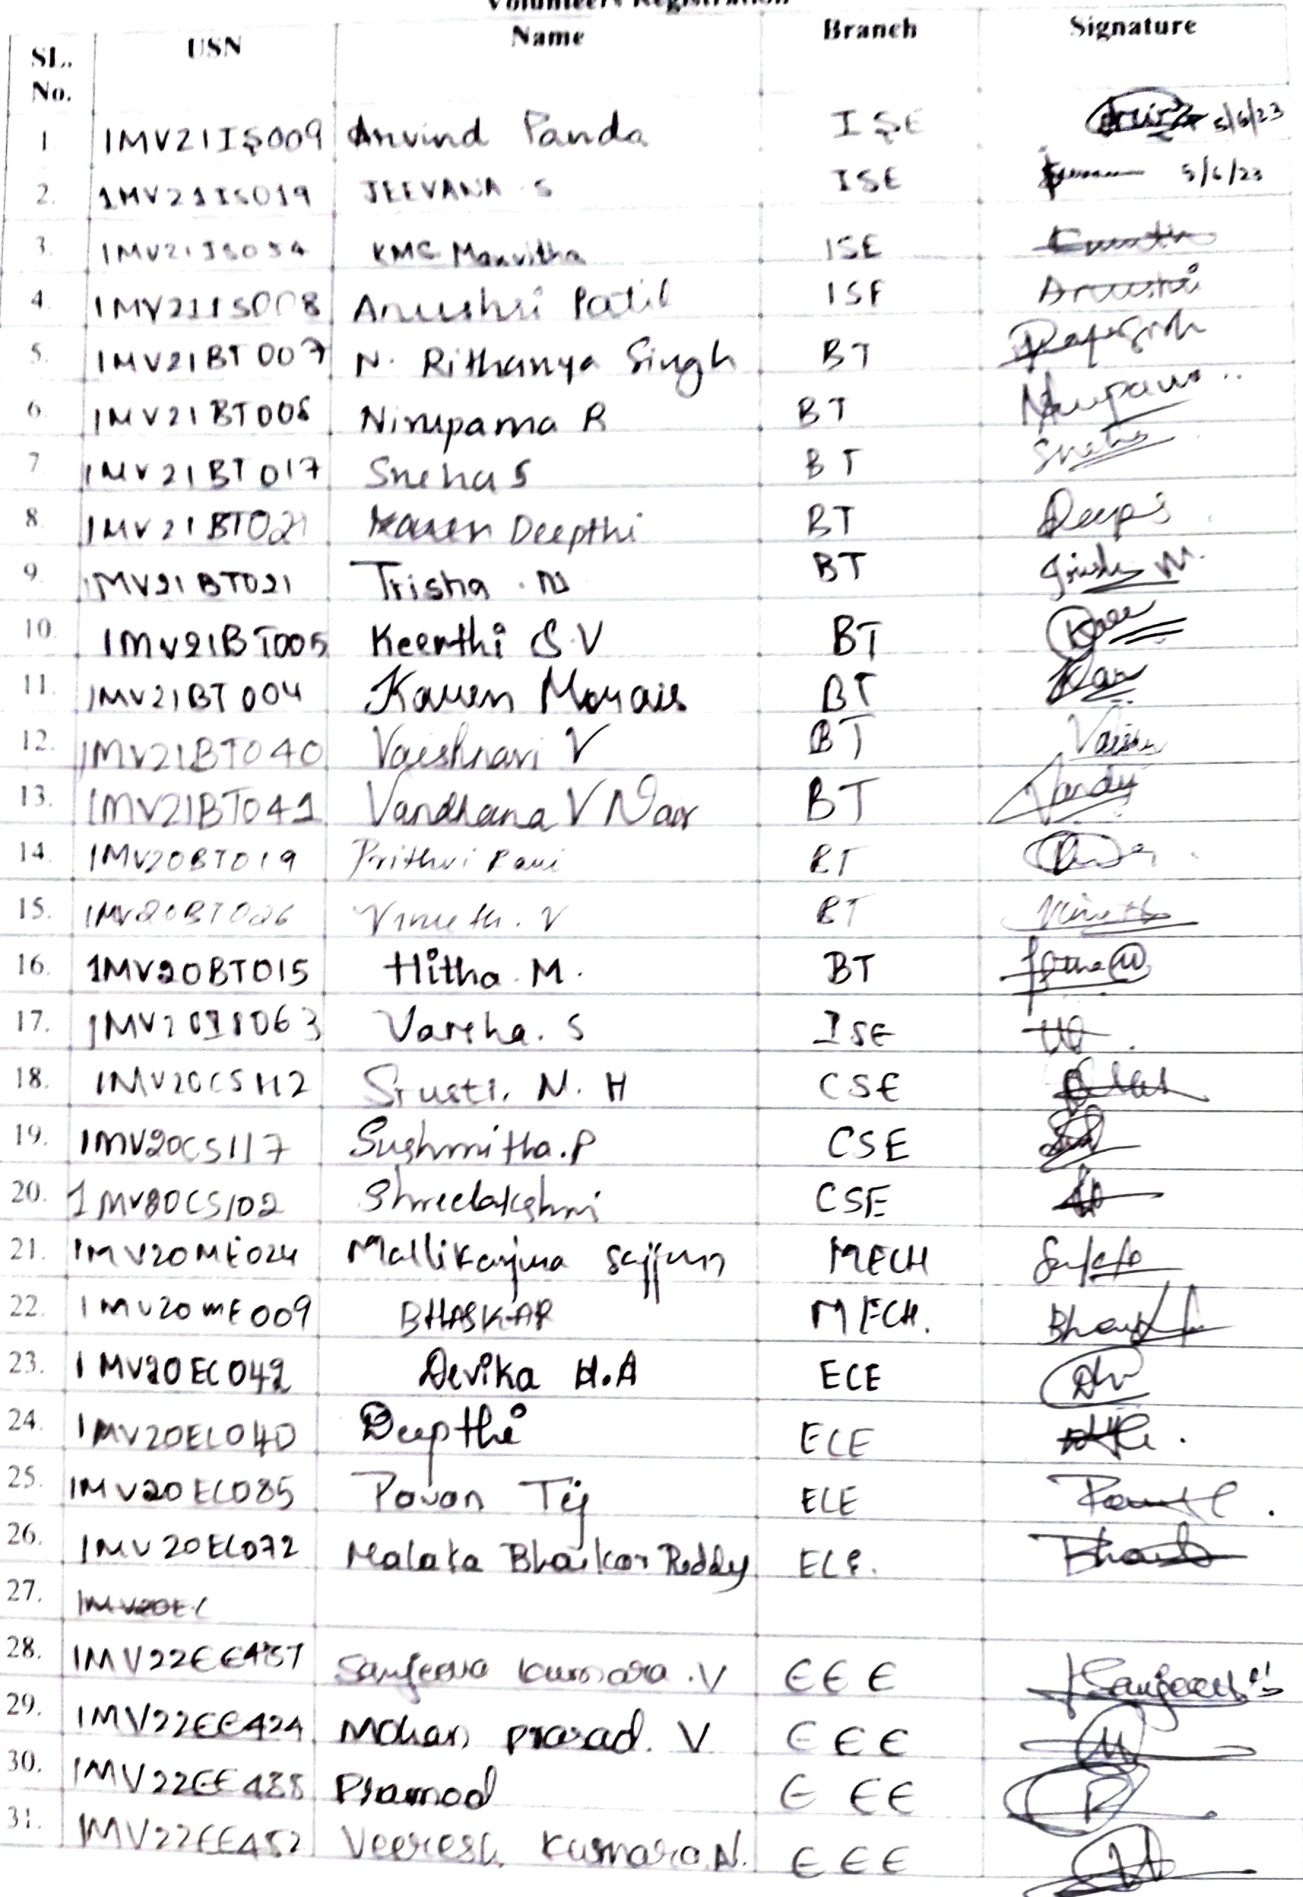 Volunteers Registration
SL. No. USN Name Branch Signature
1. 1MV21IS009 Arvind Panda ISE 5/6/23
2. 1MV21IS019 JEEVANA S ISE 5/6/23
3. 1MV21IS034 KMC Manvitha ISE
4. 1MV21IS008 Anushri Patil ISE Anushri
5. 1MV21BT007 N. Rithanya Singh BT
6. BT Nirupama R
7. 1MV21BT017 Sneha S BT Sneha
8. Deepthi BT
9. 1MV21BT021 Trisha . N BT Trisha N.
10. 1MV21BT005 Keerthi S V BT
11. 1MV21BT004 Karen Morais BT
12. 1MV21BT040 Vaishnavi V BT
13. 1MV21BT041 Vandhana V BT
14. 1MV20BT019 Prithvi BT
15. 1MV20BT026 Vineeth. V BT Vineeth
16. 1MV20BT015 Hitha M. BT
17. Varsha. S ISE
18. 1MV20CS112 Srusti. N. H CSE
19. 1MV20CS117 Sushmitha.P CSE
20. 1MV20CS102 Shreelakshmi CSE
21. 1MV20ME024 Mallikarjuna Sajjan MECH
22. 1MV20ME009 BHASKAR MECH.
23. 1MV20EC042 Devika H.A ECE
24. 1MV20EC040 Deepthi ECE
25. 1MV20EC085 Pavan Tej ECE
26. 1MV20EC072 Malaka Bhaskar Reddy ECE.
27. 1MV20EC
28. Sanjeeva Kumara .V EEE
29. 1MV22EE424 Mohan Prasad. V EEE
30. Pramod EEE
31. 1MV22EE452 Veeresh Kumara.N. EEE